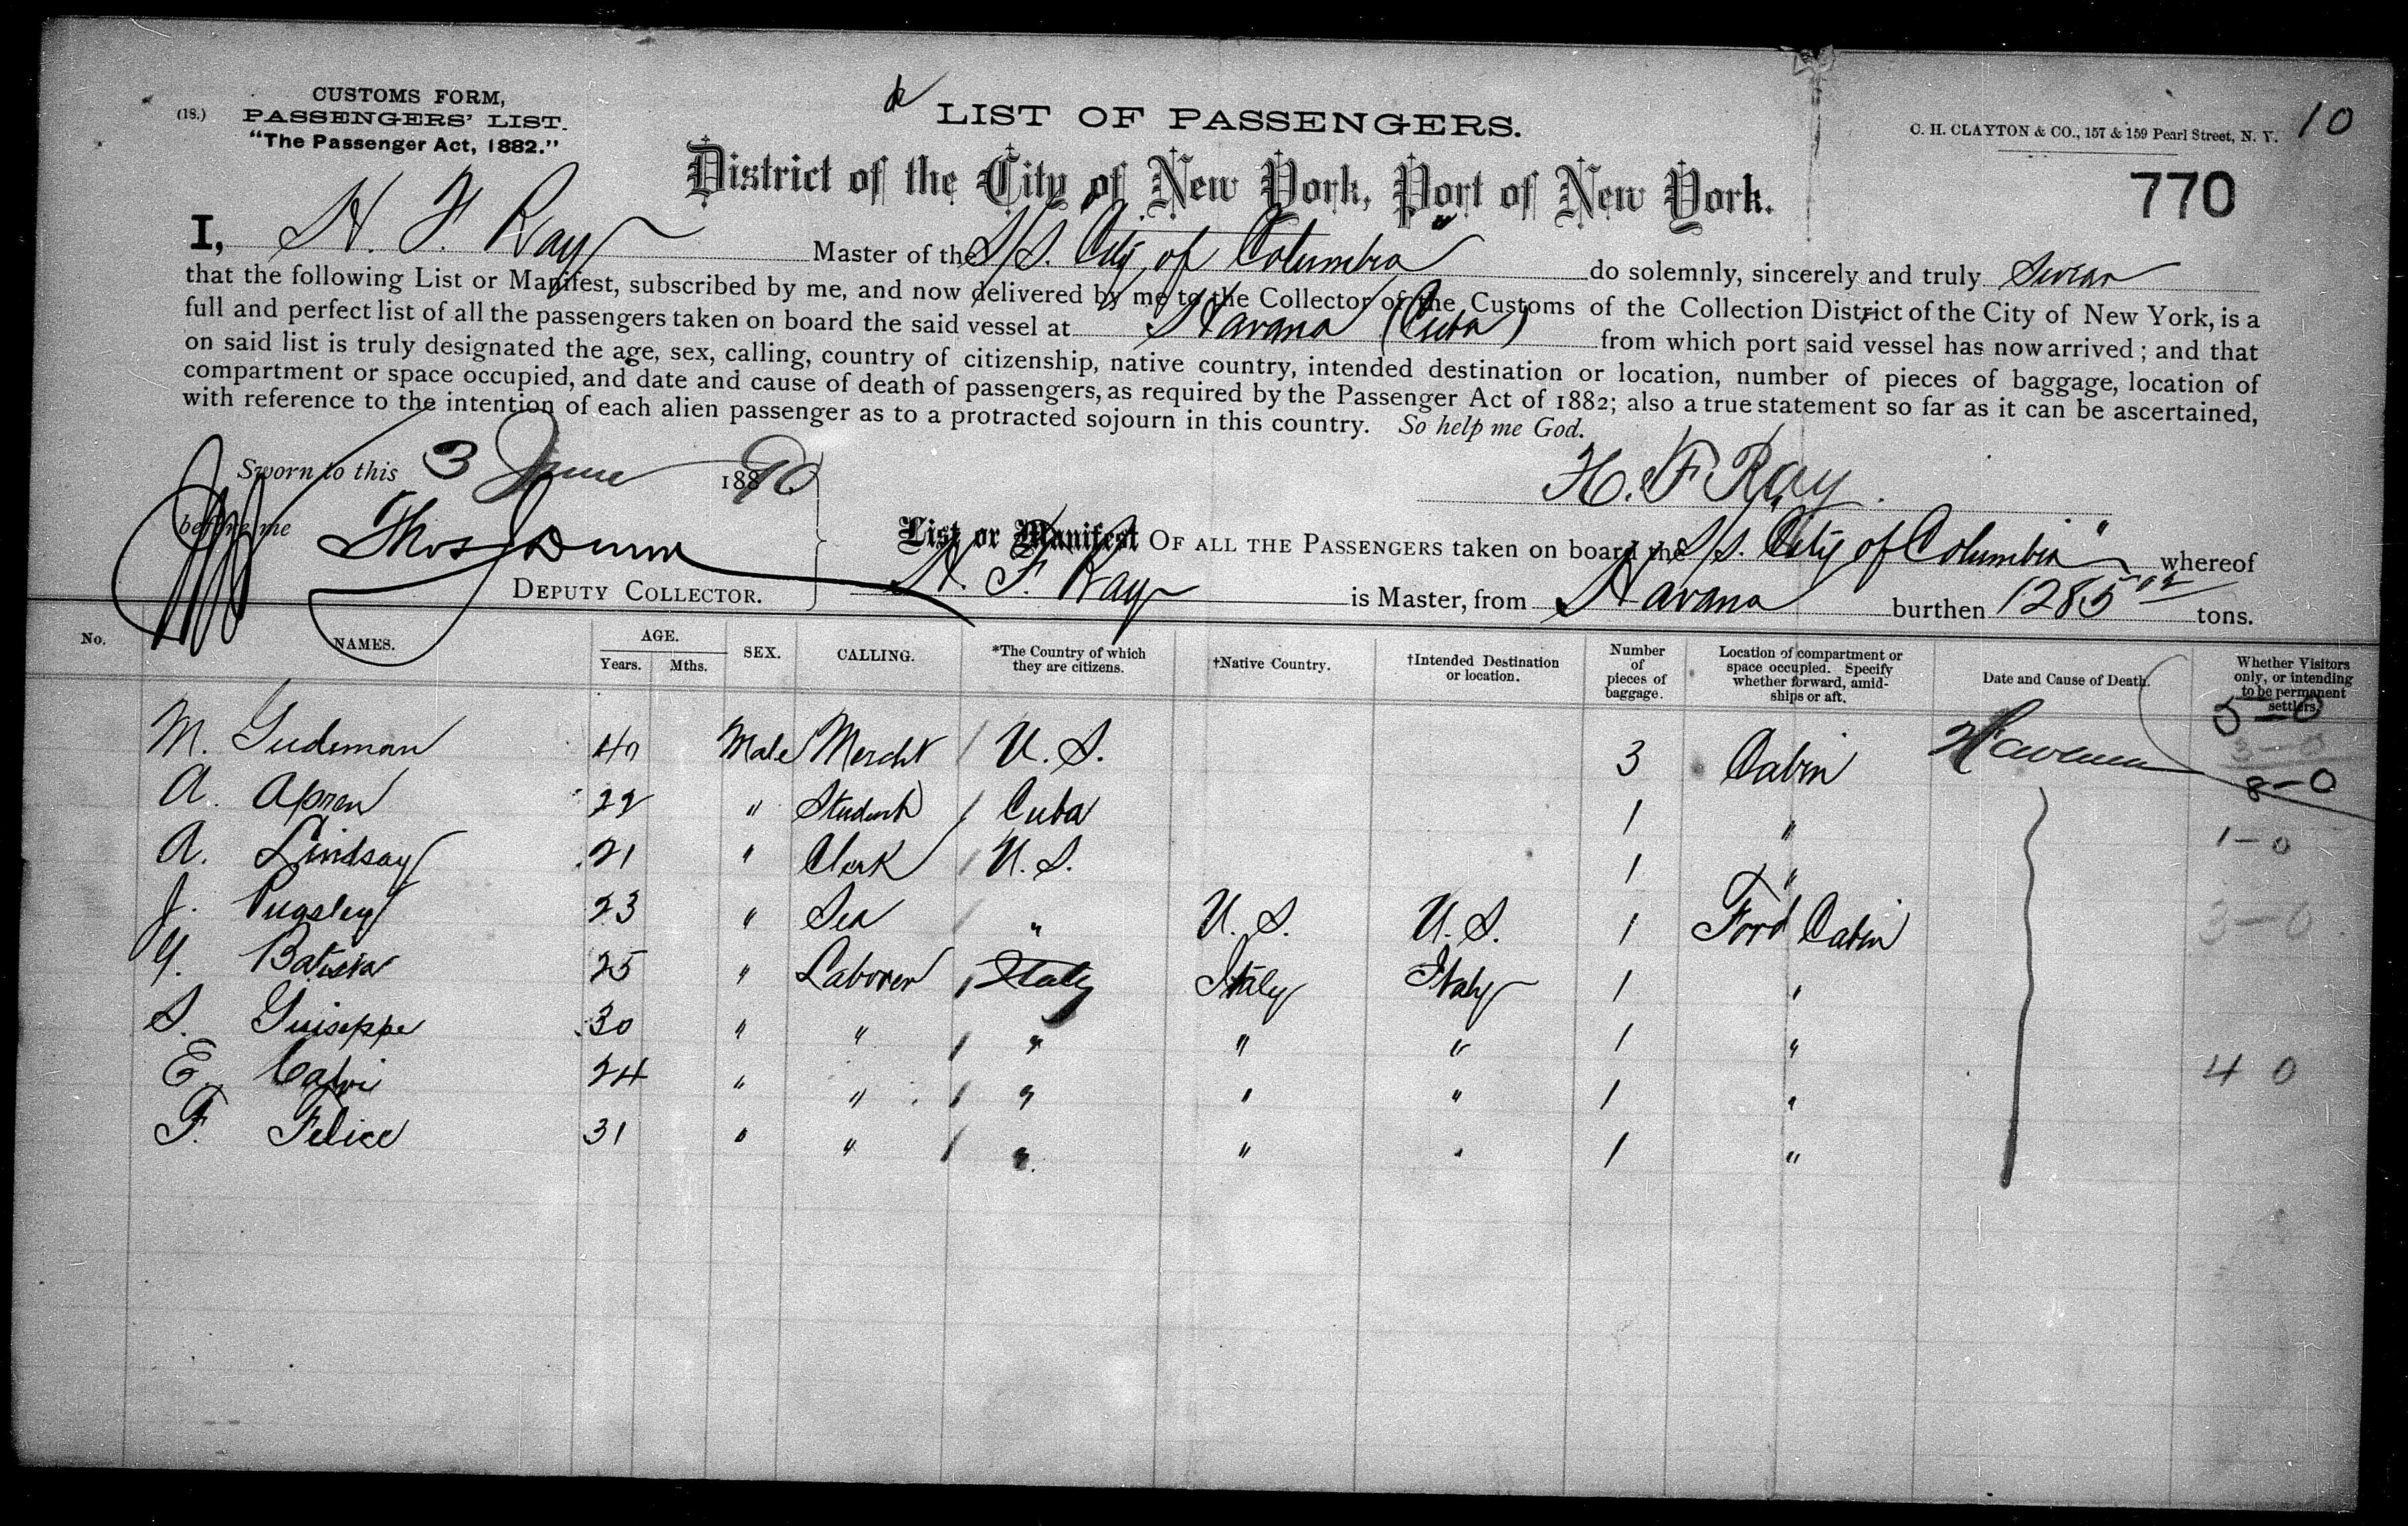 10
(18.)
CUSTOMS FORM,
PASSENGERS' LIST.
"The Passenger Act, 1882."
LIST OF PASSENGERS.
C. H. CLAYTON & CO., 157 & 159 Pearl Street, N. Y.
District of the City of New York, Port of New York.
770
I, H. F. Ray Master of the S/S. City of Columbia do solemnly, sincerely and truly swear
that the following List or Manifest, subscribed by me, and now delivered by me to the Collector of the Customs of the Collection District of the City of New York, is a
full and perfect list of all the passengers taken on board the said vessel at Havana (Cuba) from which port said vessel has now arrived; and that
on said list is truly designated the age, sex, calling, country of citizenship, native country, intended destination or location, number of pieces of baggage, location of
compartment or space occupied, and date and cause of death of passengers, as required by the Passenger Act of 1882; also a true statement so far as it can be ascertained,
with reference to the intention of each alien passenger as to a protracted sojourn in this country. So help me God.
Sworn to this 3 June 1890
H. F. Ray
before me Thos Dunn
DEPUTY COLLECTOR.
List or Manifest OF ALL THE PASSENGERS taken on board the S/S. "City of Columbia" whereof
H. F. Ray is Master, from Havana burthen 1285 tons.
No. NAMES. AGE. Years. Mths. SEX. CALLING. *The Country of which they are citizens. †Native Country. †Intended Destination or location. Number of pieces of baggage. Location of compartment or space occupied. Specify whether forward, amidships or aft. Date and Cause of Death. Whether Visitors only, or intending to be permanent settlers.
5-0
M. Gudeman 40 Male Mercht / U. S. 3 Cabin Havana 3-0
8-0
A. Apren 22 " Student / Cuba 1 " 1-0
A. Lindsay 21 " Clerk / U. S. 1 "
J. Pugsley 23 " Sea / " U. S. U. S. 1 Ford Cabin 3-0
G. Batista 25 " Laborer / Italy Italy Italy 1 "
S. Guiseppe 30 " " / " " " 1 "
E. Calvi 24 " " / " " " 1 " 4 0
F. Felice 31 " " / " " " 1 "